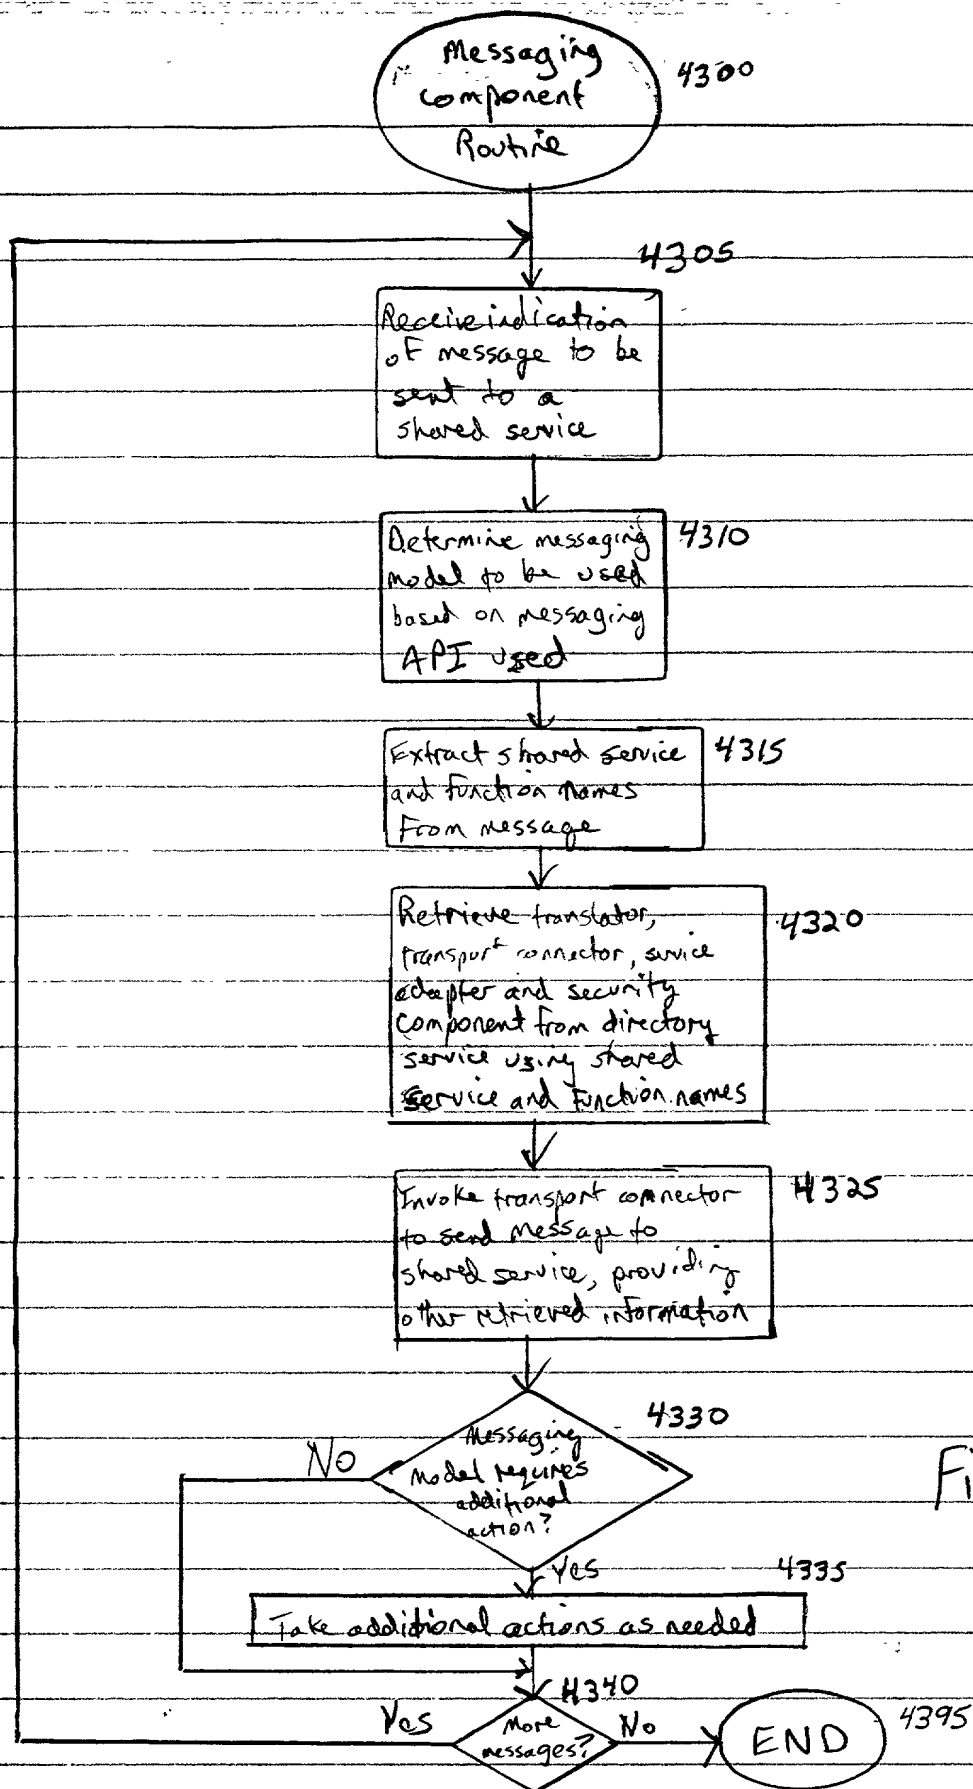 Messaging
component
Routine
4300
4305
Receive indication
of message to be
sent to a
shared service
Determine messaging
model to be used
based on messaging
API used
4310
Extract shared service
and function names
From message
4315
Retrieve translator,
transport connector, service
adapter and security
component from directory
service using shared
service and function names
4320
Invoke transport connector
to send message to
shared service, providing
other retrieved information
4325
4330
Messaging
model requires
additional
action?
No
Yes
4335
Take additional actions as needed
4340
More
messages?
Yes
No
END
4395